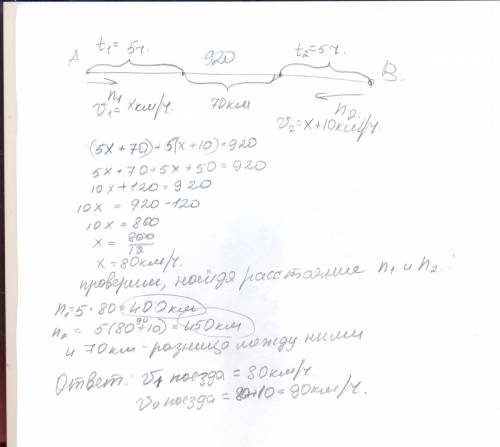 t₁ = 5ч. 920 t₂ = 5ч.
A B.
n₁ 70км n₂
v₁ = xкм/ч. v₂ = x+10км/ч.
(5x + 70) + 5(x + 10) = 920
5x + 70 + 5x + 50 = 920
10x + 120 = 920
10x = 920 - 120
10x = 800
x = 800/10
x = 80км/ч.
проверим, найдя расстояние n₁ и n₂:
n₁ = 5 · 80 = 400км
n₂ = 5(80+10) 90 = 450км
и 70км - разница между ними
Ответ: v₁ поезда = 80км/ч
v₂ поезда = 80+10 = 90км/ч.